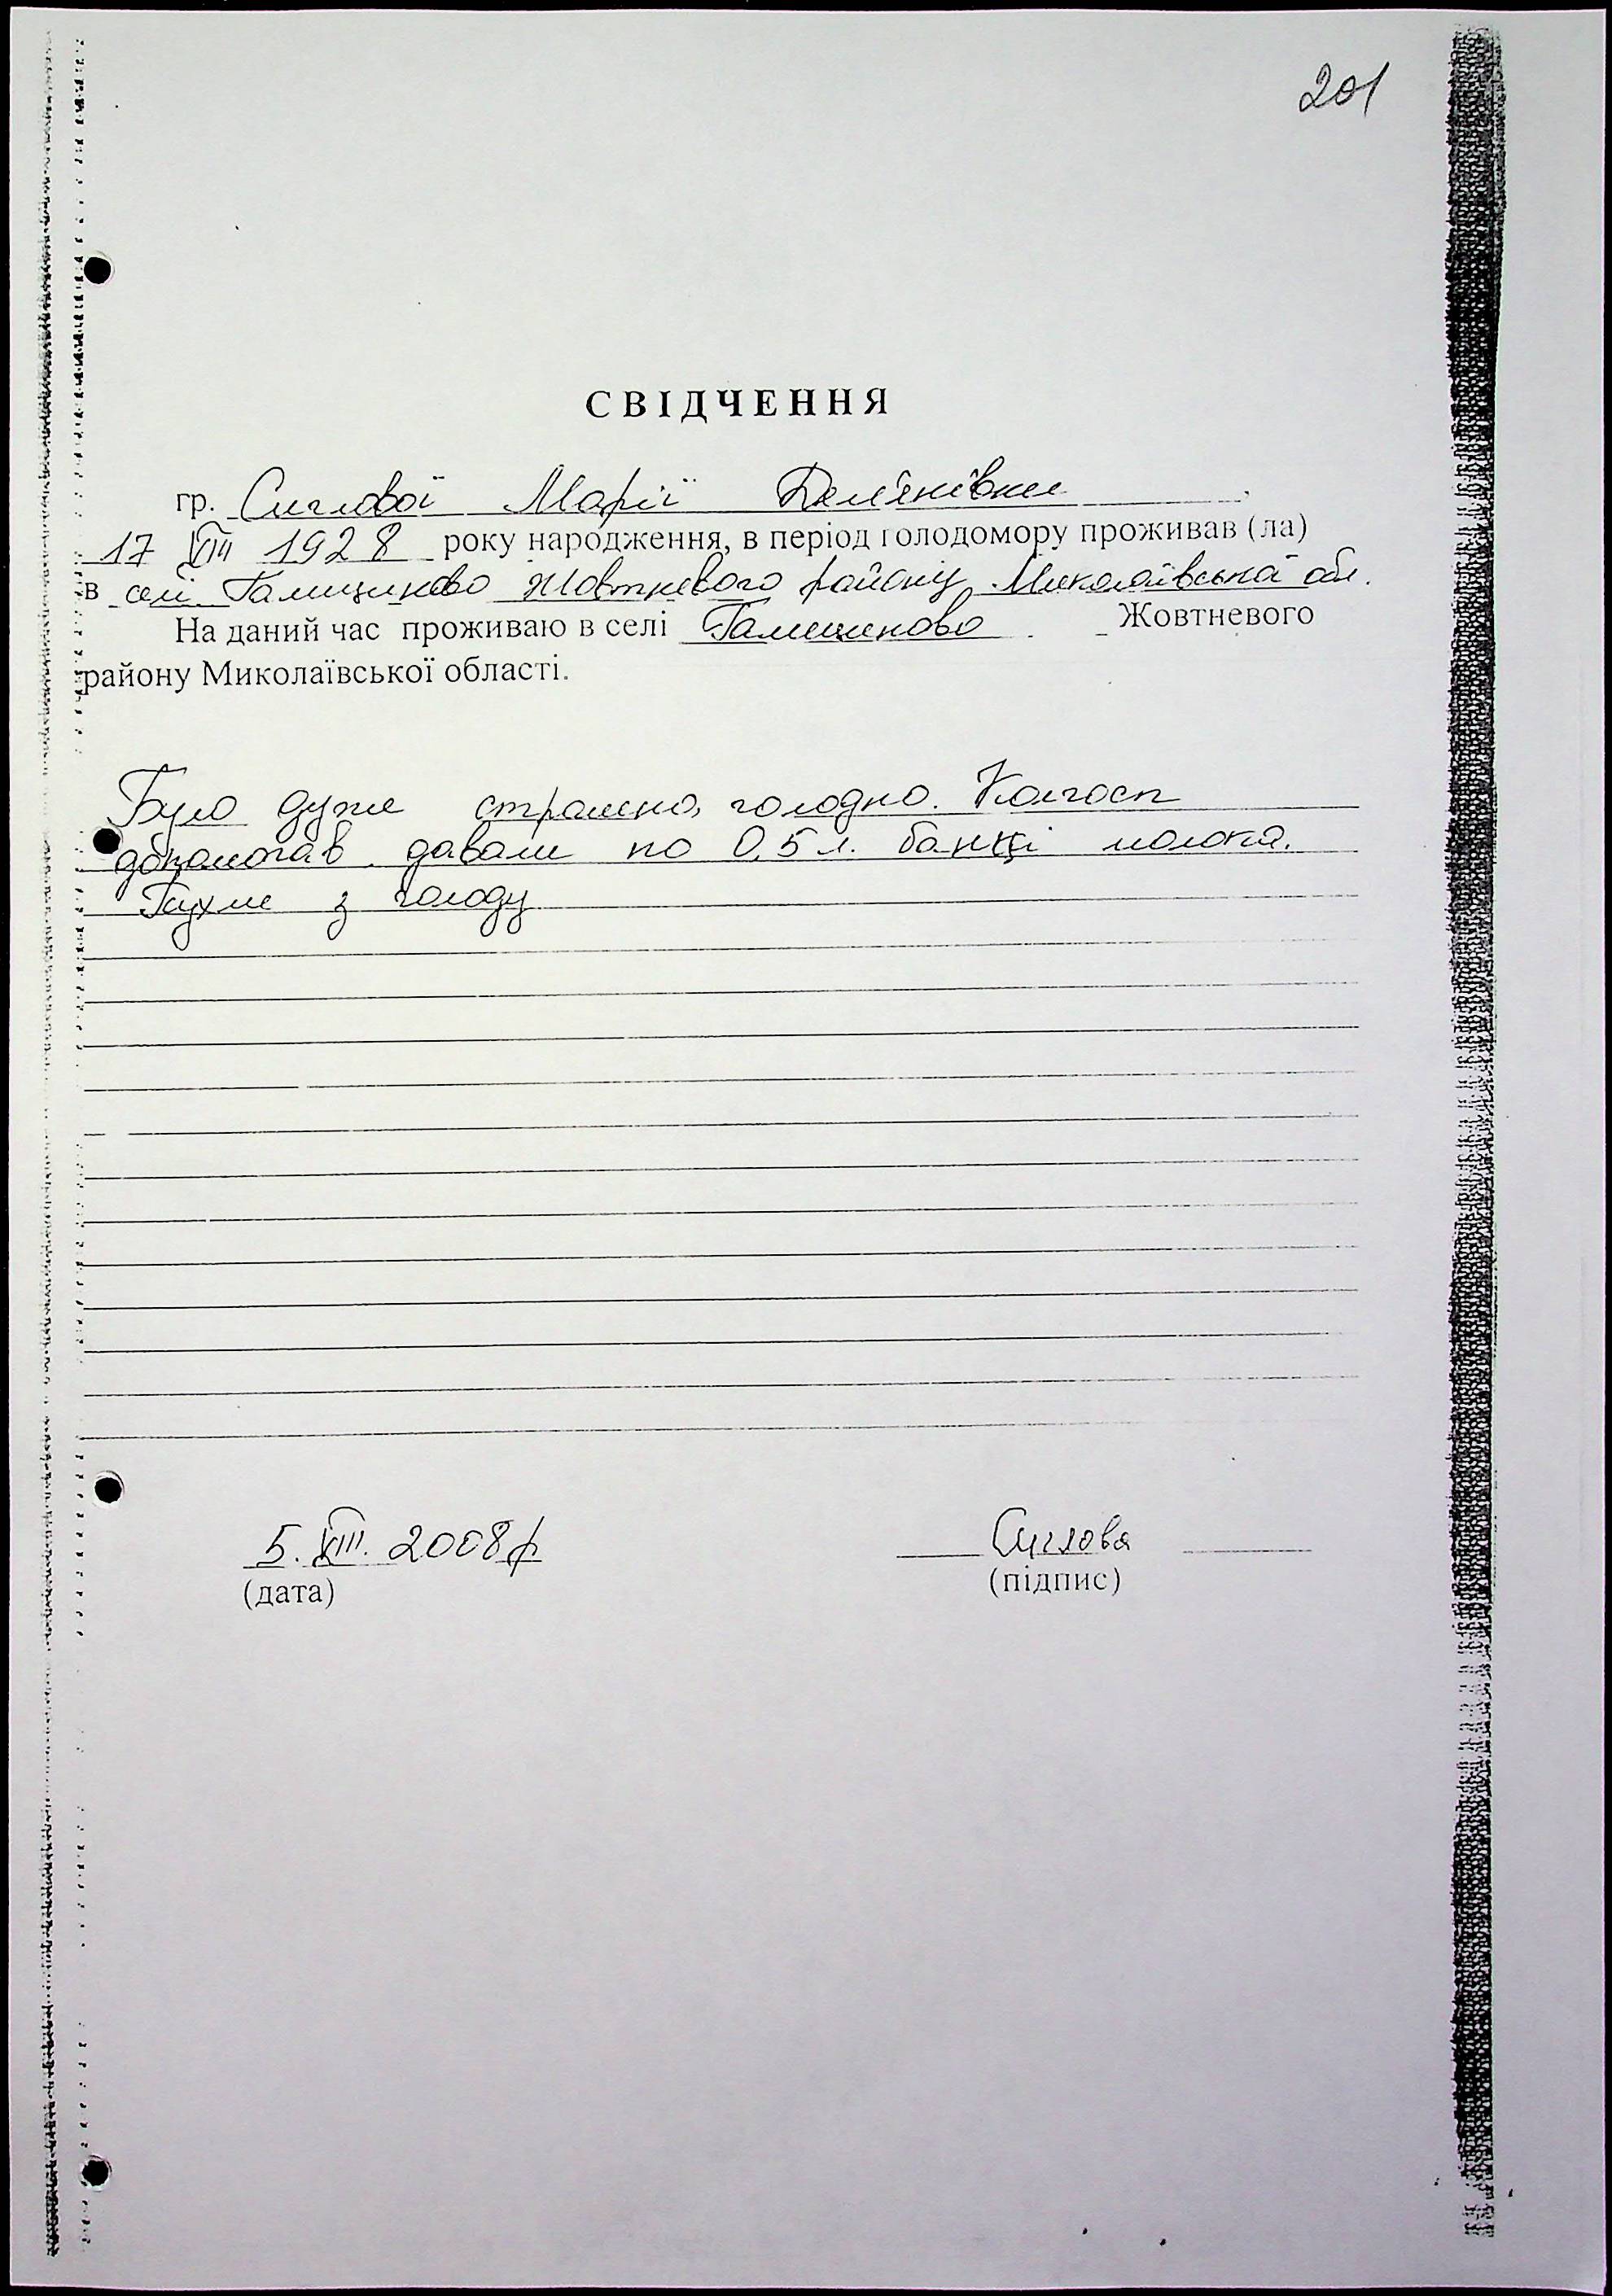 201
СВІДЧЕННЯ
гр. Сиглової Марії Дем'янівни
17 VIII 1928 року народження, в період голодомору проживав (ла)
в селі Галициново Жовтневого району, Миколаївської обл.
На даний час проживаю в селі Галициново Жовтневого
району Миколаївської області.
Було дуже страшно, голодно. Колгосп
допомагав давали по 0,5 л. банкці молока.
Пухли з голоду
5. VIII. 2008р
(дата)
Сиглова
(підпис)